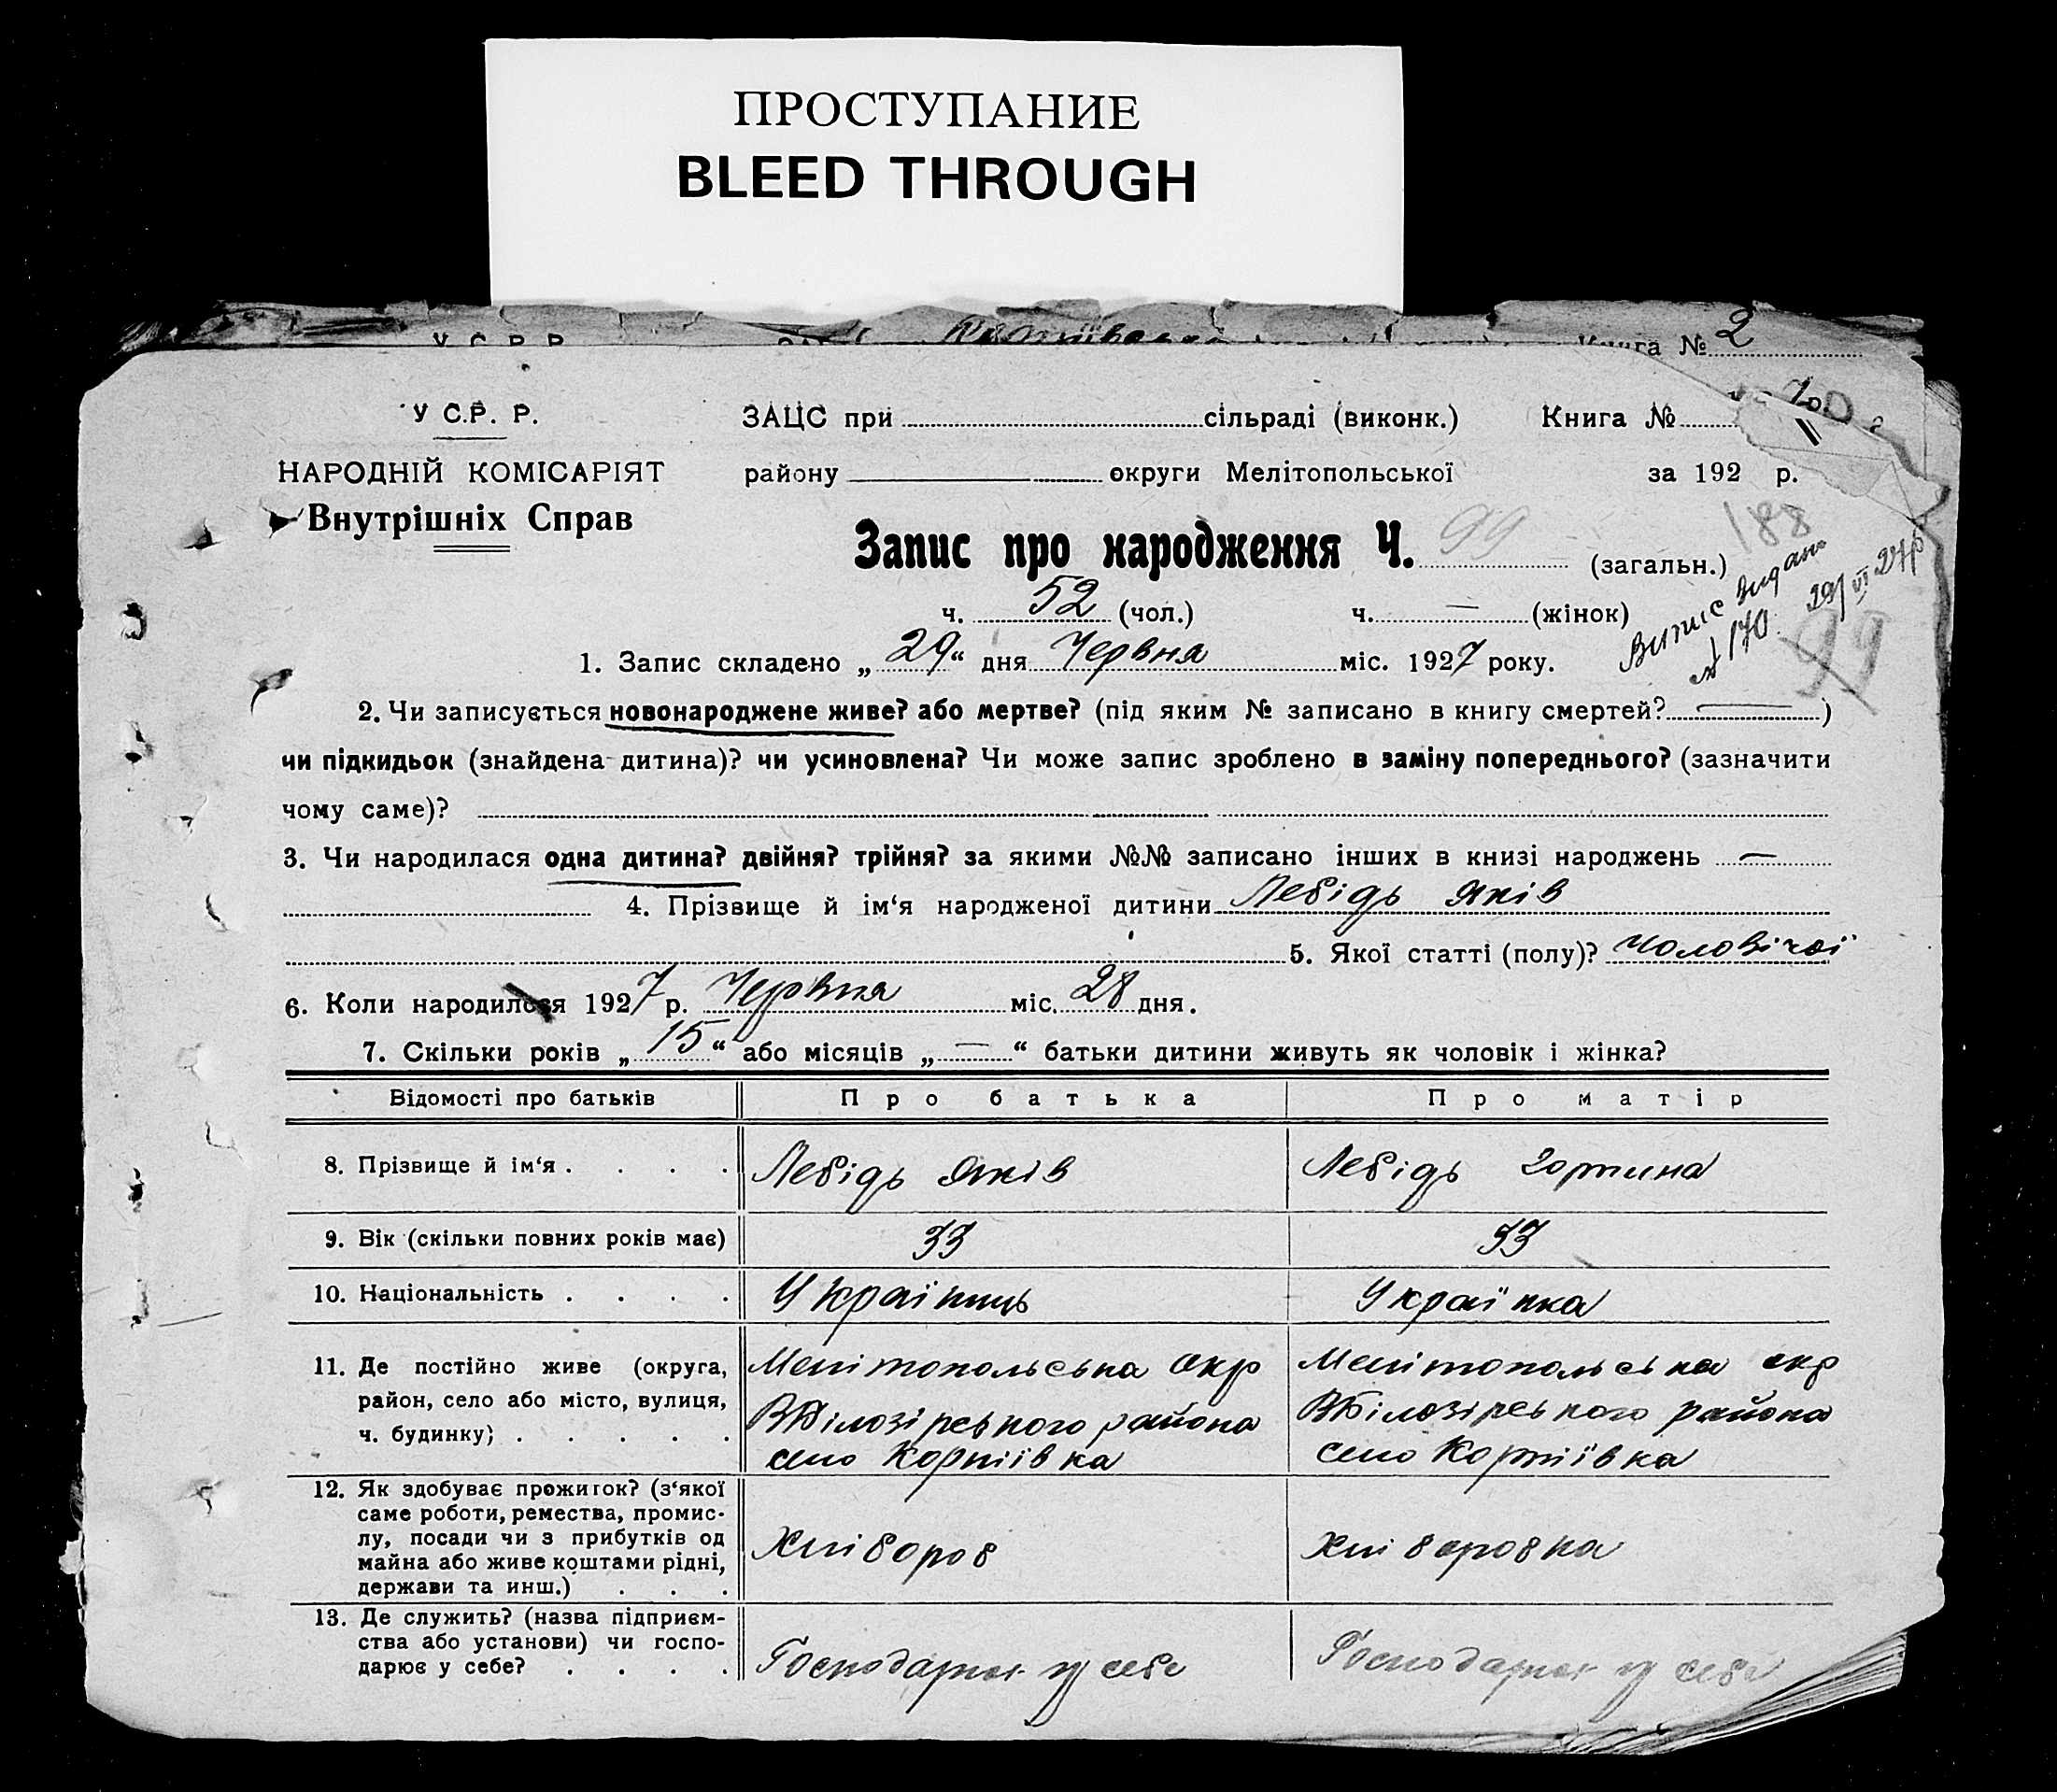 ПРОСТУПАНИЕ
BLEED THROUGH
У С. Р. Р.
Книга № 2
У С.Р. Р.
ЗАЦС при сільраді (виконк.) Книга №
НАРОДНІЙ КОМІСАРІЯТ
району округи Мелітопольської за 192 р.
Внутрішніх Справ
Запис про народження Ч. 99 (загальн.)
188
ч. 52 (чол.) ч. — (жінок)
Випис видан
№ 170. 29/VI 27р
99
1. Запис складено „ 29 “ дня Червня міс. 1927 року.
2. Чи записується новонароджене живе? або мертве? (під яким № записано в книгу смертей? — )
чи підкидьок (знайдена дитина)? чи усиновлена? Чи може запис зроблено в заміну попереднього? (зазначити
чому саме)?
3. Чи народилася одна дитина? двійня? трійня? за якими №№ записано інших в книзі народжень —
4. Прізвище й ім‘я народженої дитини Лебідь Яків
5. Якої статті (полу)? Чоловічої
6. Коли народилося 1927 р. Червня міс. 28 дня.
7. Скільки років „ 15 “ або місяців „ — “ батьки дитини живуть як чоловік і жінка?
Відомості про батьків Про батька Про матір
8. Прізвище й ім‘я . . . . Лебідь Яків Лебідь
9. Вік (скільки повних років має) 33 33
10. Національність . . . . Українць Українка
11. Де постійно живе (округа, Мелітопольська окр Мелітопольська окр
район, село або місто, вулиця, ВБілозірського района ВБілозірського района
ч. будинку) . . . . . село Корніївка село Корніївка
12. Як здобуває прожиток? (з‘якої
саме роботи, ремества, промис-
лу, посади чи з прибутків од Хлібороб Хлібробка
майна або живе коштами рідні,
держави та инш.) . . .
13. Де служить? (назва підприєм-
ства або установи) чи госпо-
дарює у себе? . . . . Господарює у себе Господарює у себе